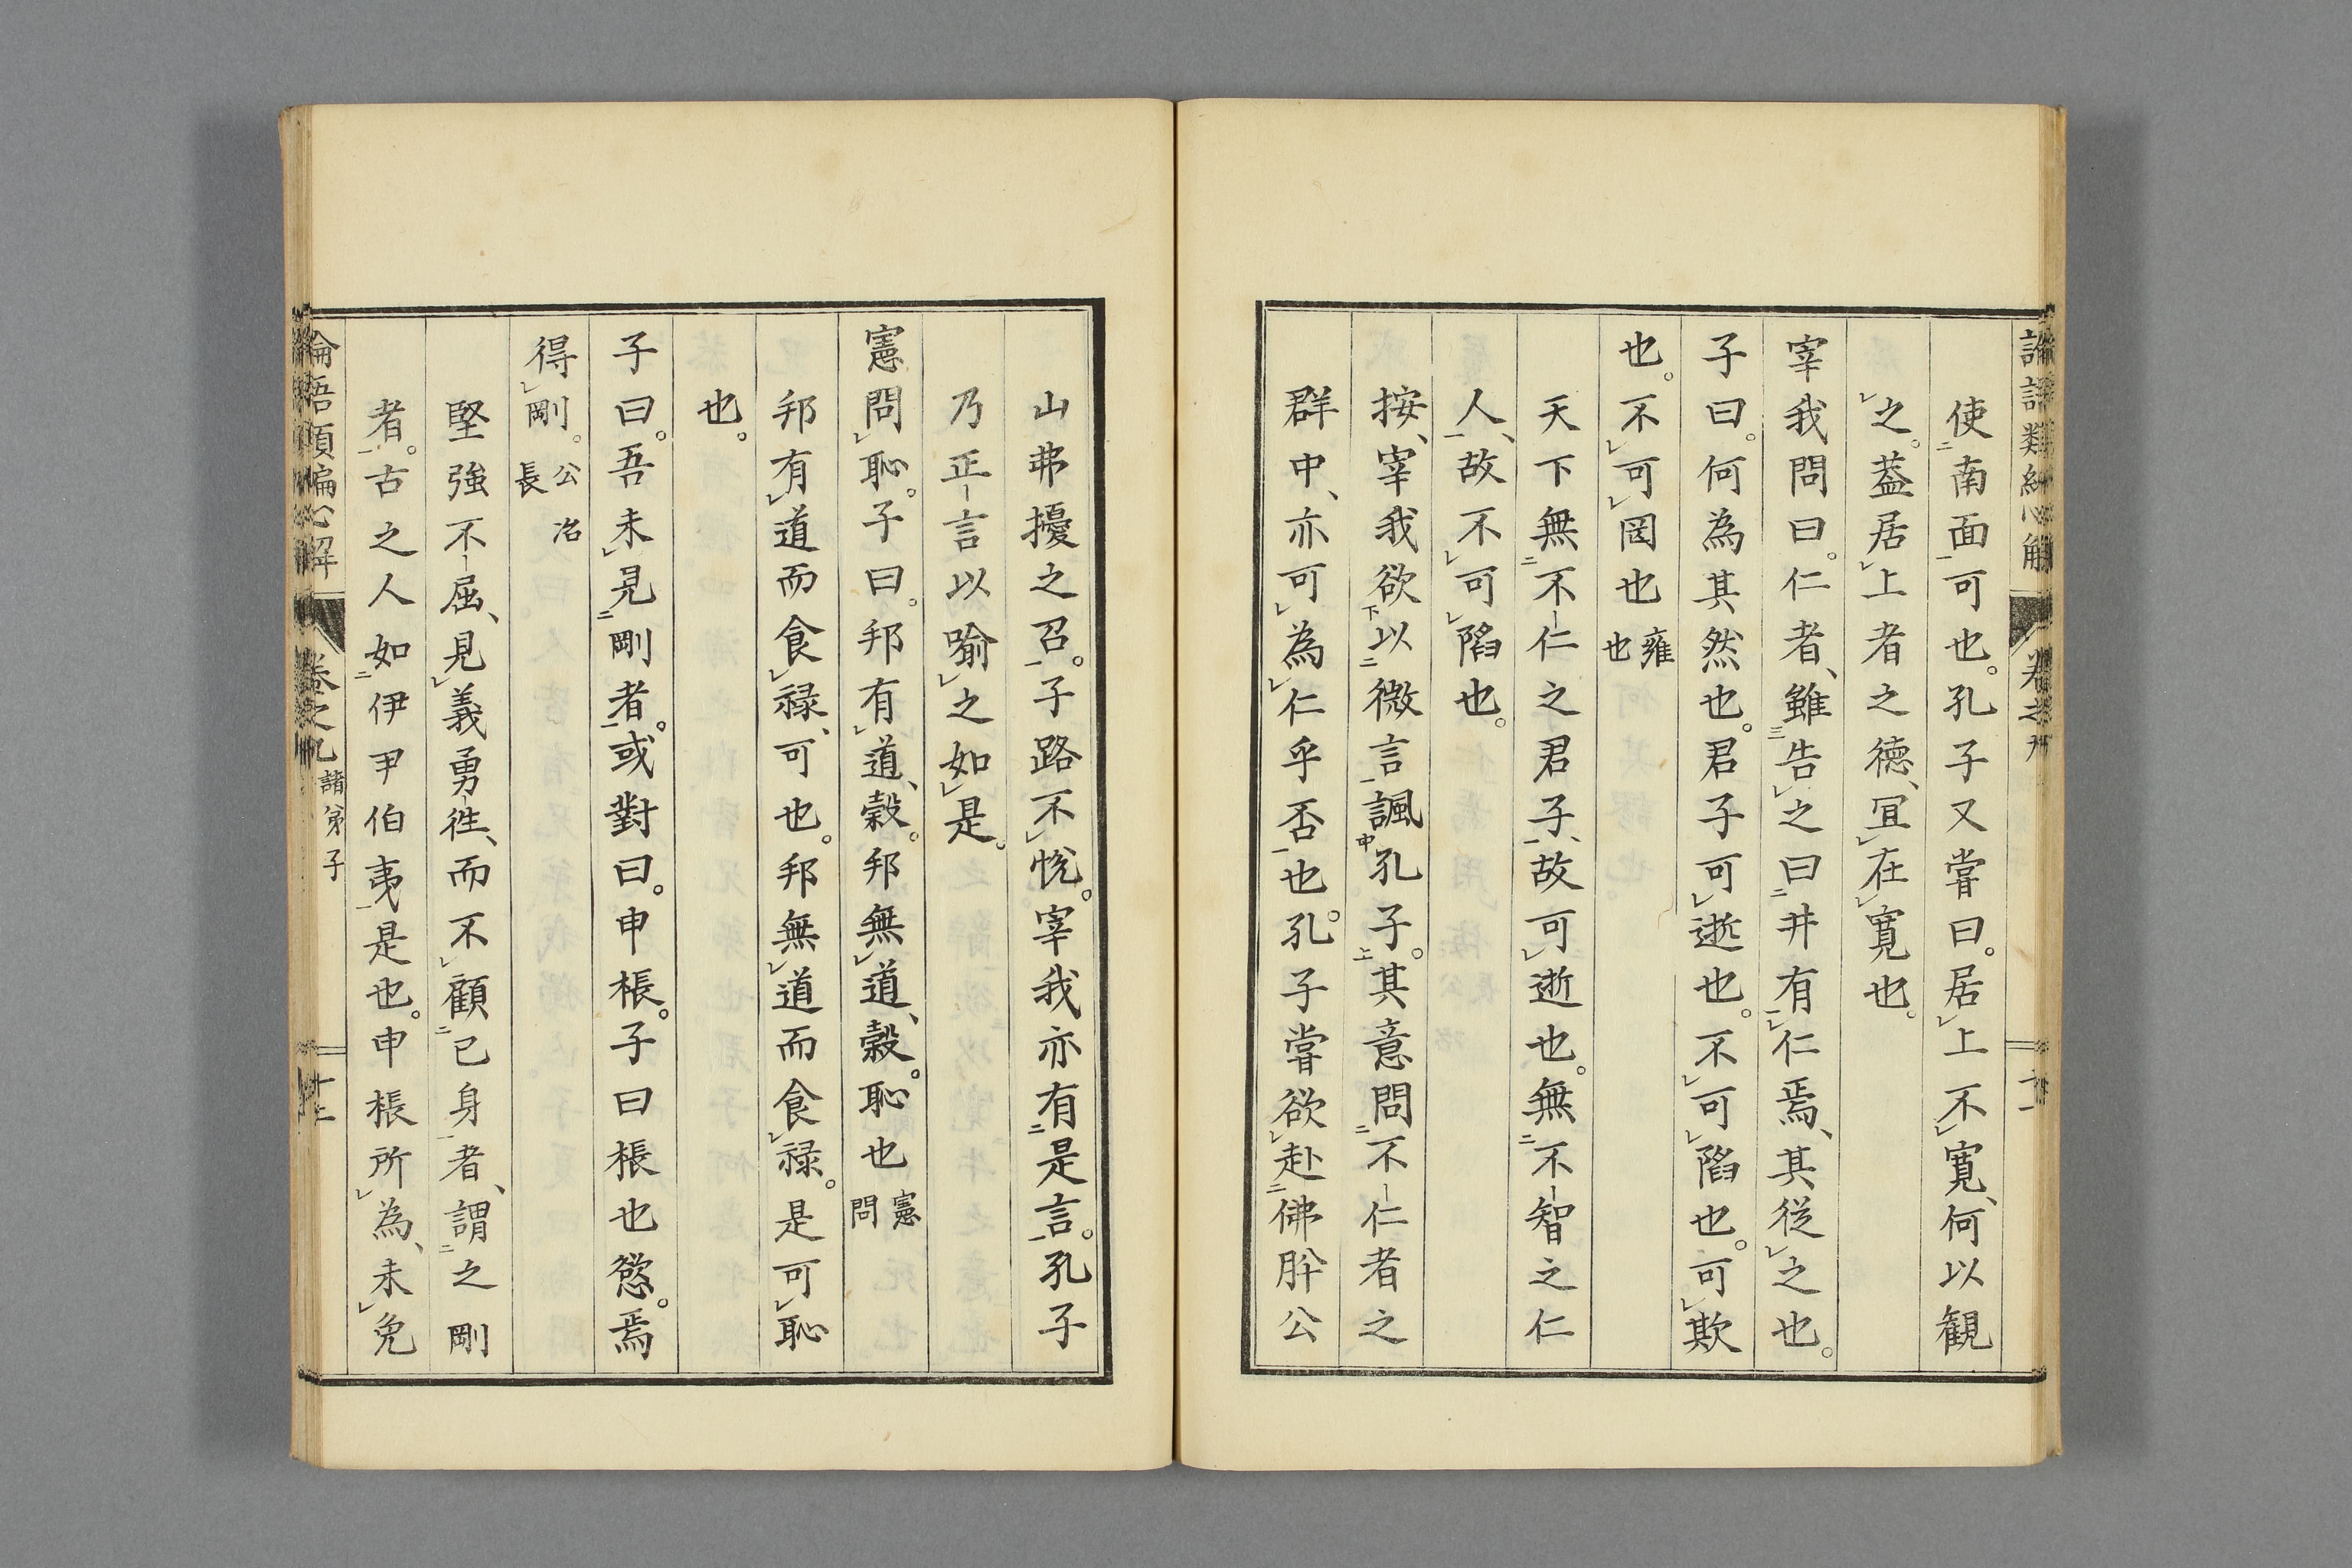 使南面可也。孔子又嘗曰。居上不寬、何以観
之。葢居上者之德、宜在寬也。
宰我問曰。仁者、雖告之曰井有仁焉、其從之也。
子曰。何為其然也。君子可逝也。不可陷也。可欺
也。不可罔也 雍也
天下無不仁之君子、故可逝也。無不智之仁
人、故不可陷也。
按、宰我欲以微言諷孔子。其意問不仁者之
群中、亦可為仁乎否也。孔子嘗欲赴佛肸公
山弗擾之召。子路不悅。宰我亦有是言。孔子
乃正言以喻之如是。
憲問恥。子曰。邦有道、穀。邦無道、穀。恥也 憲問
邦有道而食祿、可也。邦無道而食祿。是可恥
也。
子曰。吾未見剛者。或對曰。申棖。子曰棖也慾。焉
得剛。公冶長
堅強不屈、見義勇徃、而不顧己身者、謂之剛
者。古之人如伊尹伯夷是也。申棖所為、未免
卷之九 諸弟子